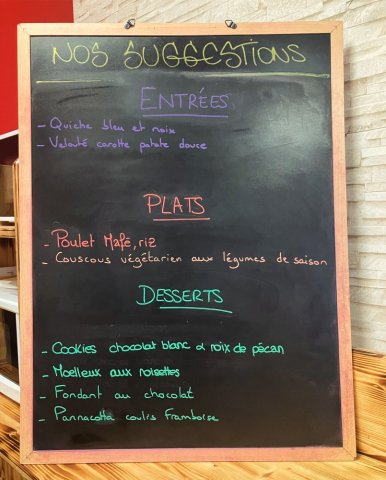 NOS SUGGESTIONS
ENTRÉES
- Quiche bleu et noix
- Velouté carotte patate douce
PLATS
- Poulet Mafé, riz
- Couscous végétarien aux légumes de saison
DESSERTS
- Cookies chocolat blanc & noix de pécan
- Moelleux aux noisettes
- Fondant au chocolat
- Pannacotta coulis framboise